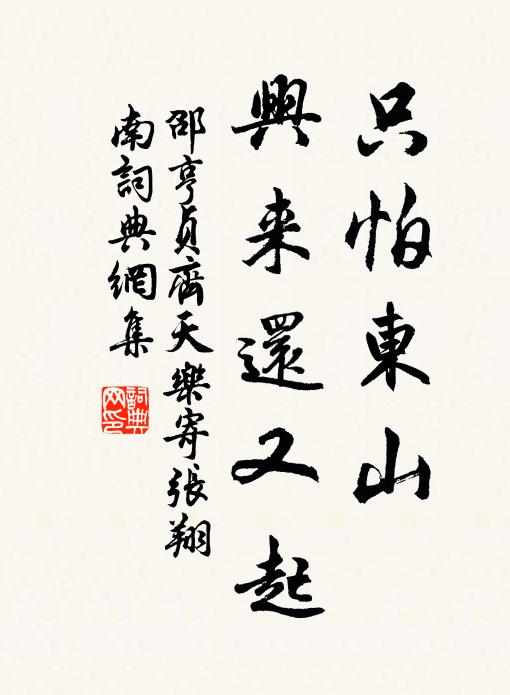 只怕東山
興来還又起
邵亨貞齊天樂寄張翔
南詞典網集
詞典
网印